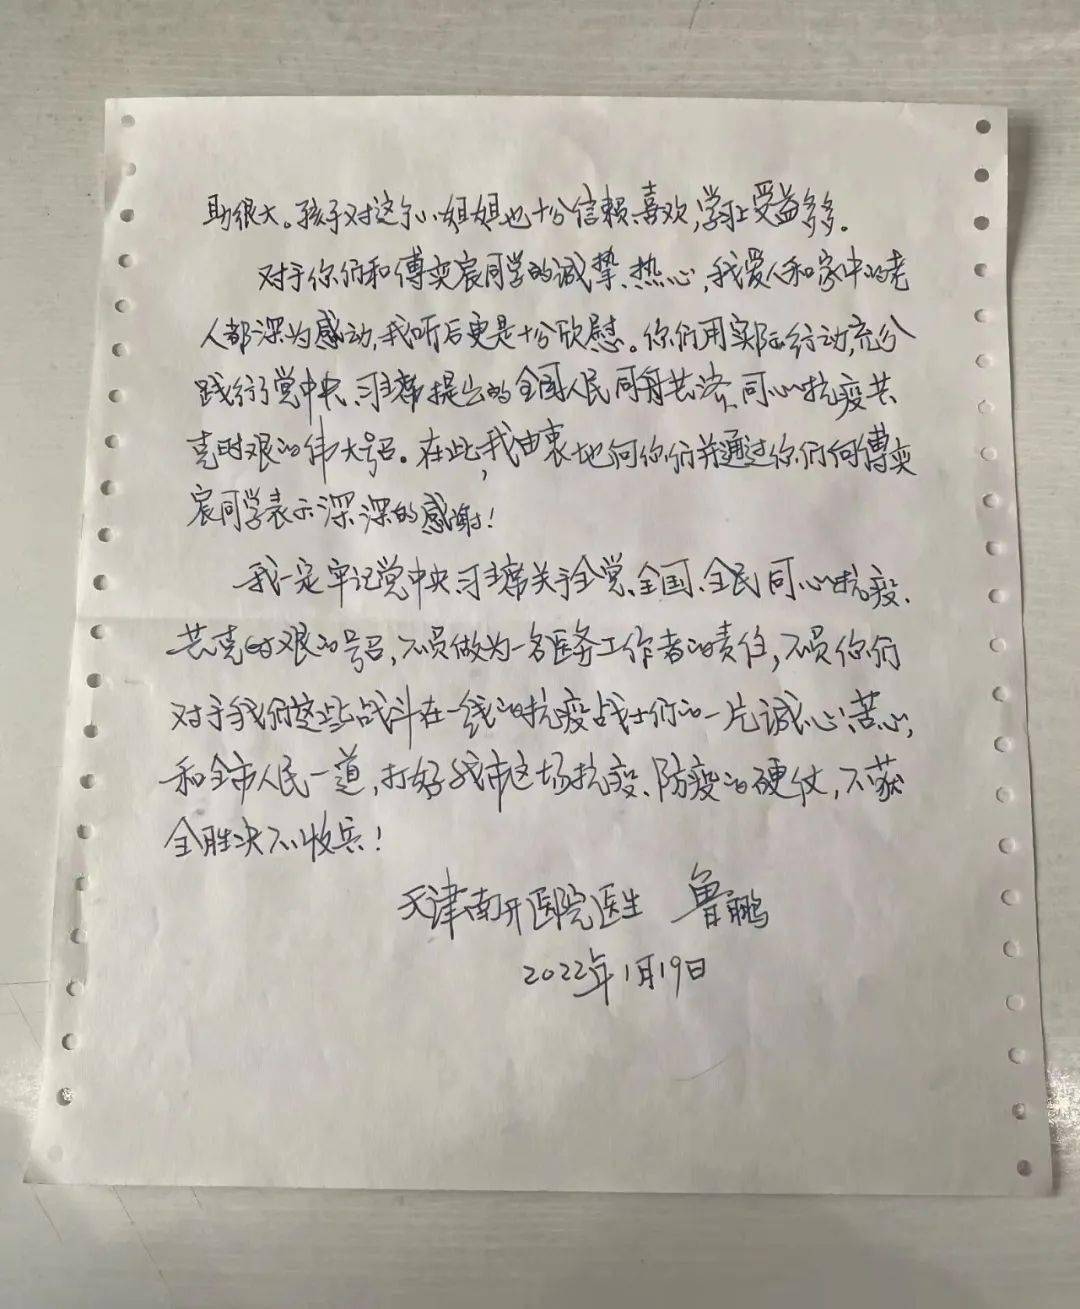 助很大。孩子对这个小姐姐也十分信赖、喜欢,学习上受益多多。
对于你们和傅奕宸同学的诚挚、热心,我爱人和家中的老
人都深为感动,我听后更是十分欣慰。你们用实际行动,充分
践行了党中央、习主席提出的全国人民同舟共济、同心抗疫共
克时艰的伟大号召。在此,我由衷地向你们并通过你们向傅奕
宸同学表示深深的感谢!
我一定牢记党中央、习主席关于全党、全国、全民同心抗疫、
共克时艰的号召,不负做为一名医务工作者的责任,不负你们
对于我们这些战斗在一线的抗疫战士们的一片诚心、苦心,
和全市人民一道,打好我市这场抗疫、防疫的硬仗,不获
全胜决不收兵!
天津南开医院医生 鲁鹏
2022年1月19日